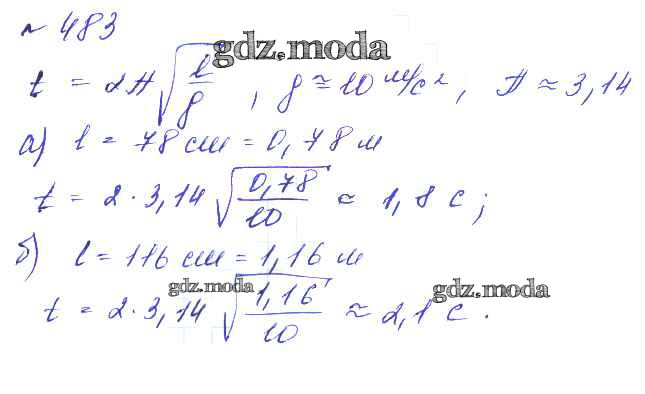 № 483
gdz.moda
t = 2π√(l/g), g ≈ 10 м/с², π ≈ 3,14
а) l = 78 см = 0,78 м
t = 2 · 3,14 √(0,78/10) ≈ 1,8 с;
б) l = 116 см = 1,16 м
gdz.moda gdz.moda
t = 2 · 3,14 √(1,16/10) ≈ 2,1 с.